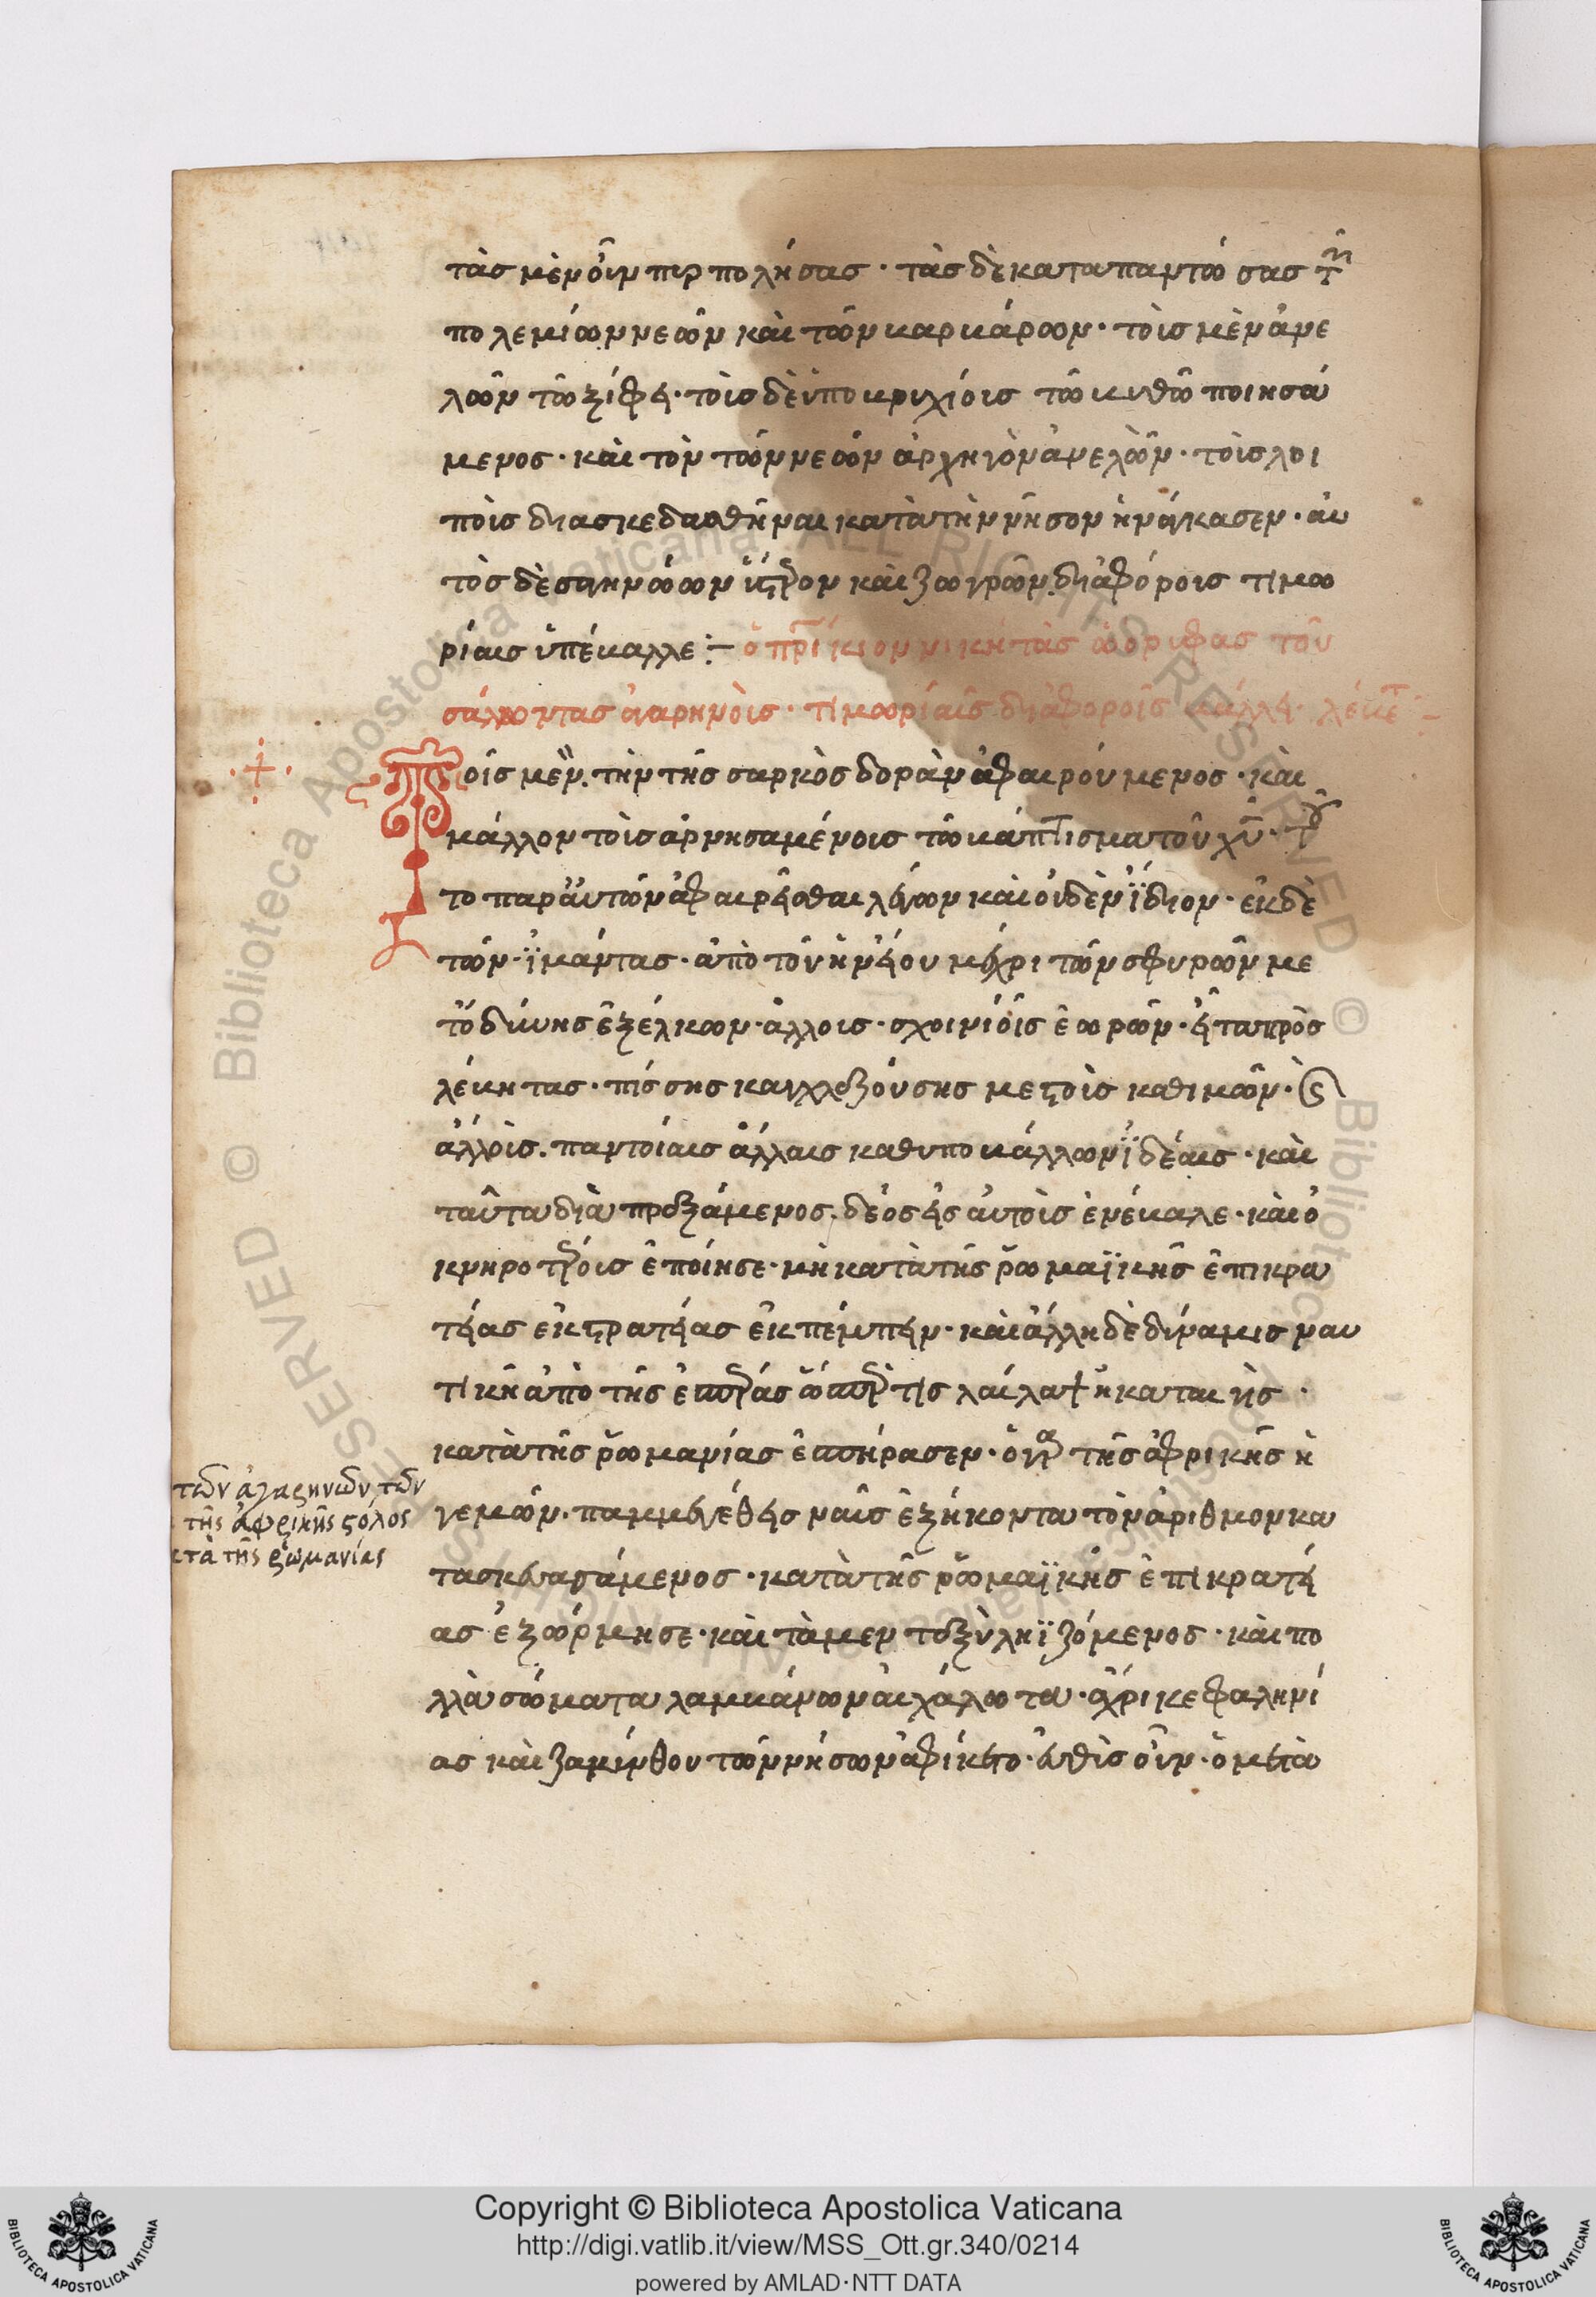 τὰσ μὲν οὖν πυρπολήσασ · τὰσ δὲ καταποντώσασ τῶν
πολεμίων νεῶν καὶ τῶν βαρβάρων · τοὺσ μὲν ἀνε
λὼν τῶ ξίφει · τοὺσ δὲ ὑποβρυχίουσ τῶ βυθῶ ποιησά
μενοσ · καὶ τὸν τῶν νεῶν ἀρχηγὸν ἀνελὼν · τοὺσ λοι
ποὺσ διασκεδασθῆναι κατὰ τὴν νῆσον ἠνάγκασεν · οὓσ
τὸσ δὲ σαγηνεύων ὕστερον καὶ ζωγρῶν. διαφόροισ τιμω
ρίαισ ὑπέβαλλε :–
σάλποντασ ἀγαρηνοὺσ · τιμωρίαις διαφόροις βάλλει
Τοῖς μὲν. τὴν τῆς σαρκὸς δορὰν ἀφαιρούμενοσ · καὶ
μάλλον τοῖσ ἀρνησαμένοισ τὸ βάπτισμα τοῦ χῦ · τοῦ
το παρ' αὐτῶν ἀφαιρεῖσθαι λέγων καὶ οὐδὲν ἴδιον · ἐκ δὲ
τῶν · ἱμάντασ · ἀπὸ τοῦ ἡνίου μέχρι τῶν σφυρῶν με
τ' ὀδύνησ ἐξέλκων · ἄλλουσ · σχοινίοις ἐωρῶν · εἶτα πρὸσ
λέβητασ · πίσσησ καχλαζούσησ μεστοὺσ καθιμῶν · καὶ
ἄλλοις. παντοίαισ ἄλλαισ καθυποβάλλων ἰδέαισ · καὶ
ταῦτα διαπραξάμενοσ. δέοσ εἰσ αὐτοὺσ ἐνέβαλε · καὶ ὀ
κνηροτέρουσ ἐποίησε · μὴ κατὰ τῆς ῥωμαϊκῆς ἐπικρα
τείασ ἐκστρατείασ ἐκπέμπειν · καὶ ἄλλη δὲ δύναμισ ναυ
τικὴ ἀπὸ τῆς ἑσπέρασ ὥσπερ τισ λαῖλαψ ἢ καταιγὶσ ·
κατὰ τῆσ ῥωμανίασ ἐπήρασεν · ὁ γὰρ τῆσ ἀφρικῆς ἡ
γεμὼν · παμμεγέθεισ ναῦσ ἑξήκοντα τὸν ἀριθμὸν κα
τασκευασάμενοσ · κατὰ τῆς ῥωμαϊκῆς ἐπικρατεί
ασ ἐξώρμησε · καὶ τὰ μεν τοξὺ ληϊζόμενοσ · καὶ πο
λλὰ σώματα λαμβάνων αἰχμάλωτα · ἄχρι κεφαληνί
ασ καὶ ζακύνθου τῶν νήσων ἀφίκετο · εὐθὺσ οὖν · ὁ μετὰ
τῶν ἀγαρηνῶν τῶν
τῆς ἀφρικῆς στόλος
κατὰ τῆς ῥωμανίας
Copyright © Biblioteca Apostolica Vaticana
http://digi.vatlib.it/view/MSS_Ott.gr.340/0214
powered by AMLAD·NTT DATA